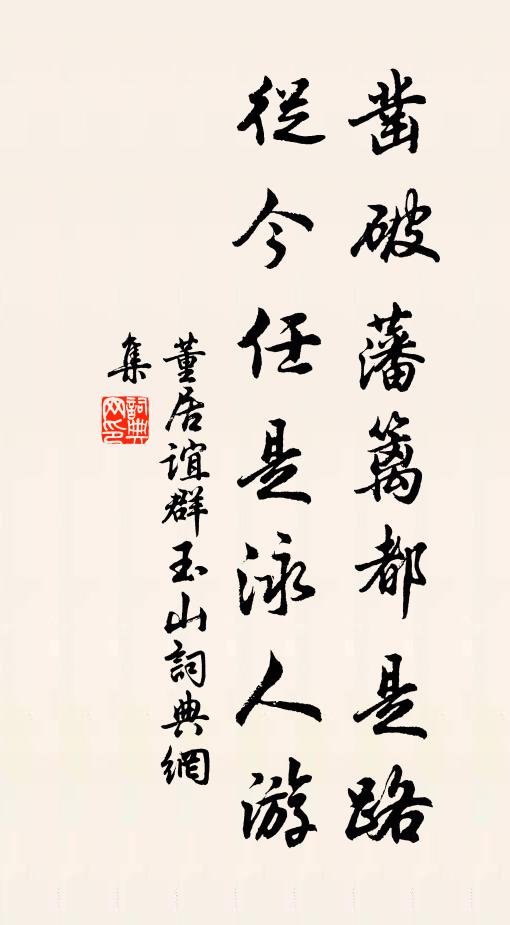 凿破藩篱都是路
從今任是泳人游
董居谊群玉山詞典網
集
詞典網印